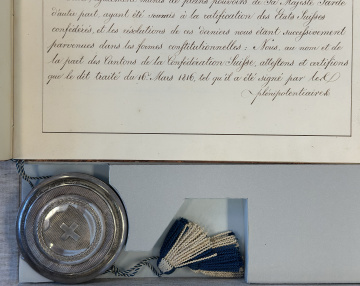 munis de pleins pouvoirs de Sa Majesté Sarde
d'autre part, ayant été soumis à la ratification des Etats Suisses
confédérés, et les résolutions de ces derniers nous étant successivement
parvenues dans les formes constitutionnelles : Nous, au nom et de
la part des Cantons de la Confédération Suisse, attestons et certifions
que le dit traité du 16e Mars 1816, tel qu'il a été signé par les
plénipotentiaires